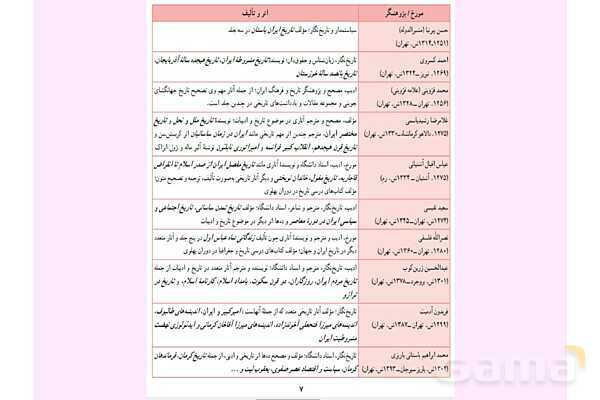 مورخ / پژوهشگر
اثر و تألیف
حسن پیرنیا (مشیرالدوله)
(۱۲۵۱ـ۱۳۱۴ش، تهران)
سیاستمدار و تاریخ‌نگار؛ مؤلف تاریخ ایران باستان در سه جلد
احمد کسروی
(۱۲۶۹، تبریز ـ ۱۳۲۴ش، تهران)
تاریخ‌نگار، زبان‌شناس و حقوق‌دار، نویسندهٔ تاریخ مشروطهٔ ایران، تاریخ هیجده سالهٔ آذربایجان،
تاریخ پانصد سالهٔ خوزستان
محمد قزوینی (علامه قزوینی)
(۱۲۵۶، تهران ـ ۱۳۲۸ش، تهران)
ادیب، مصحح و پژوهشگر تاریخ و فرهنگ ایران؛ از جمله آثار مهم وی تصحیح تاریخ جهانگشای
جوینی و مجموعه مقالات و یادداشت‌های تاریخی در چندین جلد است.
غلامرضا رشیدیاسمی
(۱۲۷۵، دالاهو کرمانشاه ـ ۱۳۳۰ش، تهران)
مؤلف، مصحح و مترجم آثاری در موضوع تاریخ و ادبیات؛ نویسندهٔ تاریخ ملل و نحل و تاریخ
مختصر ایران، مترجم چندین اثر مهم تاریخی مانند ایران در زمان ساسانیان اثر کریستن‌سن و
تاریخ قرن هیجدهم، انقلاب کبیر فرانسه و امپراتوری ناپلئون نوشتهٔ آلبر ماله و ژول ایزاک
عباس اقبال آشتیانی
(۱۲۷۵، آشتیان ـ ۱۳۳۴ش، رم)
مورخ، ادیب، استاد دانشگاه و نویسندهٔ آثاری مانند تاریخ مفصل ایران از صدر اسلام تا انقراض
قاجاریه، تاریخ مغول، خاندان نوبختی و دیگر آثار تاریخی به‌صورت تألیف، ترجمه و تصحیح متون؛
مؤلف کتاب‌های درسی تاریخ در دوران پهلوی
سعید نفیسی
(۱۲۷۴ش، تهران ـ ۱۳۴۵ش، تهران)
ادیب، تاریخ‌نگار، مترجم و شاعر، استاد دانشگاه؛ مؤلف تاریخ تمدن ساسانی، تاریخ اجتماعی و
سیاسی ایران در دورهٔ معاصر و ده‌ها اثر دیگر در موضوع تاریخ و ادبیات
نصرالله فلسفی
(۱۲۸۰، تهران ـ ۱۳۶۰ش، تهران)
مورخ، ادیب و مترجم و نویسندهٔ آثاری چون تألیف زندگانی شاه عباس اول در پنج جلد و آثار متعدد
دیگر در تاریخ ایران و جهان؛ مؤلف کتاب‌های درسی تاریخ و جغرافیا در دوران پهلوی
عبدالحسین زرین‌کوب
(۱۳۰۱ش، بروجرد ـ ۱۳۷۸ش، تهران)
ادیب، تاریخ‌نگار، مترجم و استاد دانشگاه؛ نویسنده و مترجم آثار متعدد در تاریخ و ادبیات از جمله
تاریخ مردم ایران، روزگاران، دو قرن سکوت، بامداد اسلام، کارنامهٔ اسلام، و تاریخ در
ترازو
فریدون آدمیت
(۱۲۹۹ش، تهران ـ ۱۳۸۷ش، تهران)
تاریخ‌نگار، مؤلف آثار تاریخی متعدد که از جملهٔ آنهاست: امیرکبیر و ایران، اندیشه‌های طالبوف،
اندیشه‌های میرزا فتحعلی آخوندزاده، اندیشه‌های میرزا آقاخان کرمانی و ایدئولوژی نهضت
مشروطیت ایران
محمد ابراهیم باستانی پاریزی
(۱۳۰۴ش، پاریز سیرجان ـ ۱۳۹۳ش، تهران)
تاریخ‌نگار، استاد دانشگاه؛ مؤلف و مصحح ده‌ها اثر تاریخی و ادبی، از جمله تاریخ کرمان، فرماندهان
کرمان، سیاست و اقتصاد عصر صفوی، یعقوب لیث و ...
gama
۷